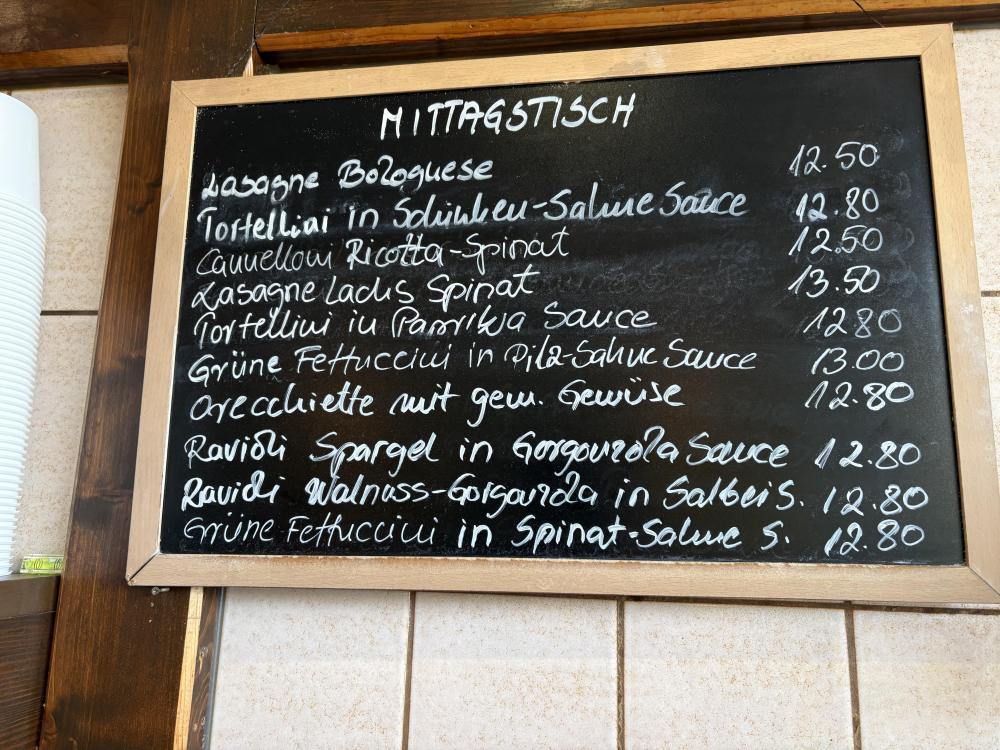 MITTAGSTISCH
Lasagne Bolognese 12.50
Tortellini in Schinken-Sahne Sauce 12.80
Cannelloni Ricotta-Spinat 12.50
Lasagne Lachs Spinat 13.50
Tortellini in Paprika Sauce 12.80
Grüne Fettuccini in Pilz-Sahne Sauce 13.00
Orecchiette mit gem. Gemüse 12.80
Ravioli Spargel in Gorgonzola Sauce 12.80
Ravioli Walnuss-Gorgonzola in Salbei S. 12.80
Grüne Fettuccini in Spinat-Sahne S. 12.80